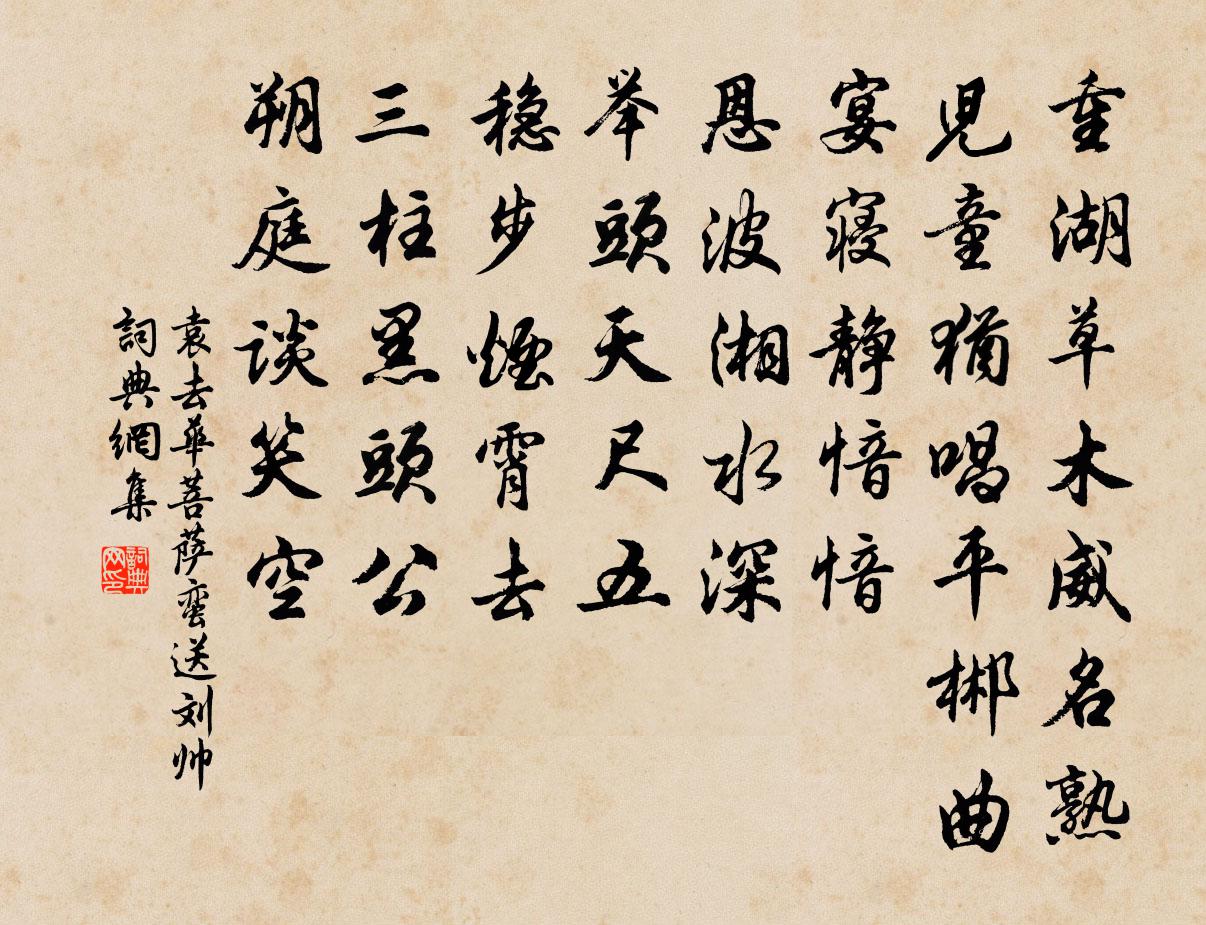 重湖草木威名熟
児童猶唱平郴曲
宴寝静愔愔
恩波湘水深
举頭天尺五
稳步煙霄去
三柱黑頭公
朔庭谈笑空
袁去華菩萨蛮送刘帅
詞典網集
詞典网印